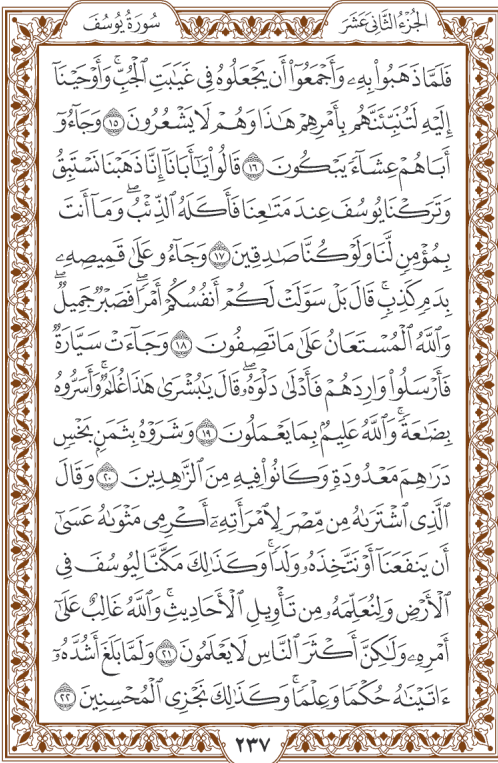 الجُزْءُ الثَّانِى عَشَرَ
سُورَةُ يُوسُفَ
فَلَمَّا ذَهَبُوا۟ بِهِۦ وَأَجْمَعُوٓا۟ أَن يَجْعَلُوهُ فِى غَيَـٰبَتِ ٱلْجُبِّ ۚ وَأَوْحَيْنَآ
إِلَيْهِ لَتُنَبِّئَنَّهُم بِأَمْرِهِمْ هَـٰذَا وَهُمْ لَا يَشْعُرُونَ ١٥ وَجَآءُوٓ
أَبَاهُمْ عِشَآءً يَبْكُونَ ١٦ قَالُوا۟ يَـٰٓأَبَانَآ إِنَّا ذَهَبْنَا نَسْتَبِقُ
وَتَرَكْنَا يُوسُفَ عِندَ مَتَـٰعِنَا فَأَكَلَهُ ٱلذِّئْبُ ۖ وَمَآ أَنتَ
بِمُؤْمِنٍ لَّنَا وَلَوْ كُنَّا صَـٰدِقِينَ ١٧ وَجَآءُو عَلَىٰ قَمِيصِهِۦ
بِدَمٍ كَذِبٍ ۚ قَالَ بَلْ سَوَّلَتْ لَكُمْ أَنفُسُكُمْ أَمْرًا ۖ فَصَبْرٌ جَمِيلٌ ۖ
وَٱللَّهُ ٱلْمُسْتَعَانُ عَلَىٰ مَا تَصِفُونَ ١٨ وَجَآءَتْ سَيَّارَةٌ
فَأَرْسَلُوا۟ وَارِدَهُمْ فَأَدْلَىٰ دَلْوَهُۥ ۖ قَالَ يَـٰبُشْرَىٰ هَـٰذَا غُلَـٰمٌ ۚ وَأَسَرُّوهُ
بِضَـٰعَةً ۚ وَٱللَّهُ عَلِيمٌۢ بِمَا يَعْمَلُونَ ١٩ وَشَرَوْهُ بِثَمَنٍۭ بَخْسٍ
دَرَٰهِمَ مَعْدُودَةٍ وَكَانُوا۟ فِيهِ مِنَ ٱلزَّٰهِدِينَ ٢٠ وَقَالَ
ٱلَّذِى ٱشْتَرَىٰهُ مِن مِّصْرَ لِٱمْرَأَتِهِۦٓ أَكْرِمِى مَثْوَىٰهُ عَسَىٰٓ
أَن يَنفَعَنَآ أَوْ نَتَّخِذَهُۥ وَلَدًا ۚ وَكَذَٰلِكَ مَكَّنَّا لِيُوسُفَ فِى
ٱلْأَرْضِ وَلِنُعَلِّمَهُۥ مِن تَأْوِيلِ ٱلْأَحَادِيثِ ۚ وَٱللَّهُ غَالِبٌ عَلَىٰٓ
أَمْرِهِۦ وَلَـٰكِنَّ أَكْثَرَ ٱلنَّاسِ لَا يَعْلَمُونَ ٢١ وَلَمَّا بَلَغَ أَشُدَّهُۥٓ
ءَاتَيْنَـٰهُ حُكْمًا وَعِلْمًا ۚ وَكَذَٰلِكَ نَجْزِى ٱلْمُحْسِنِينَ ٢٢
٢٣٧